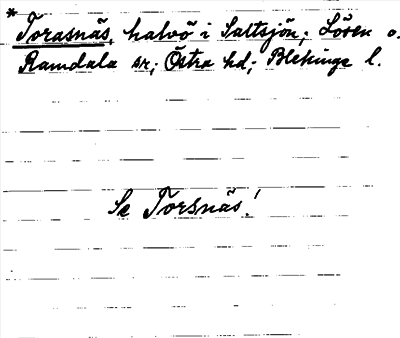 * Torasnäs, halvö i Saltsjön; Lösen o.
Ramdala sr; Östra hd; Blekinge l.
Se Torsnäs!